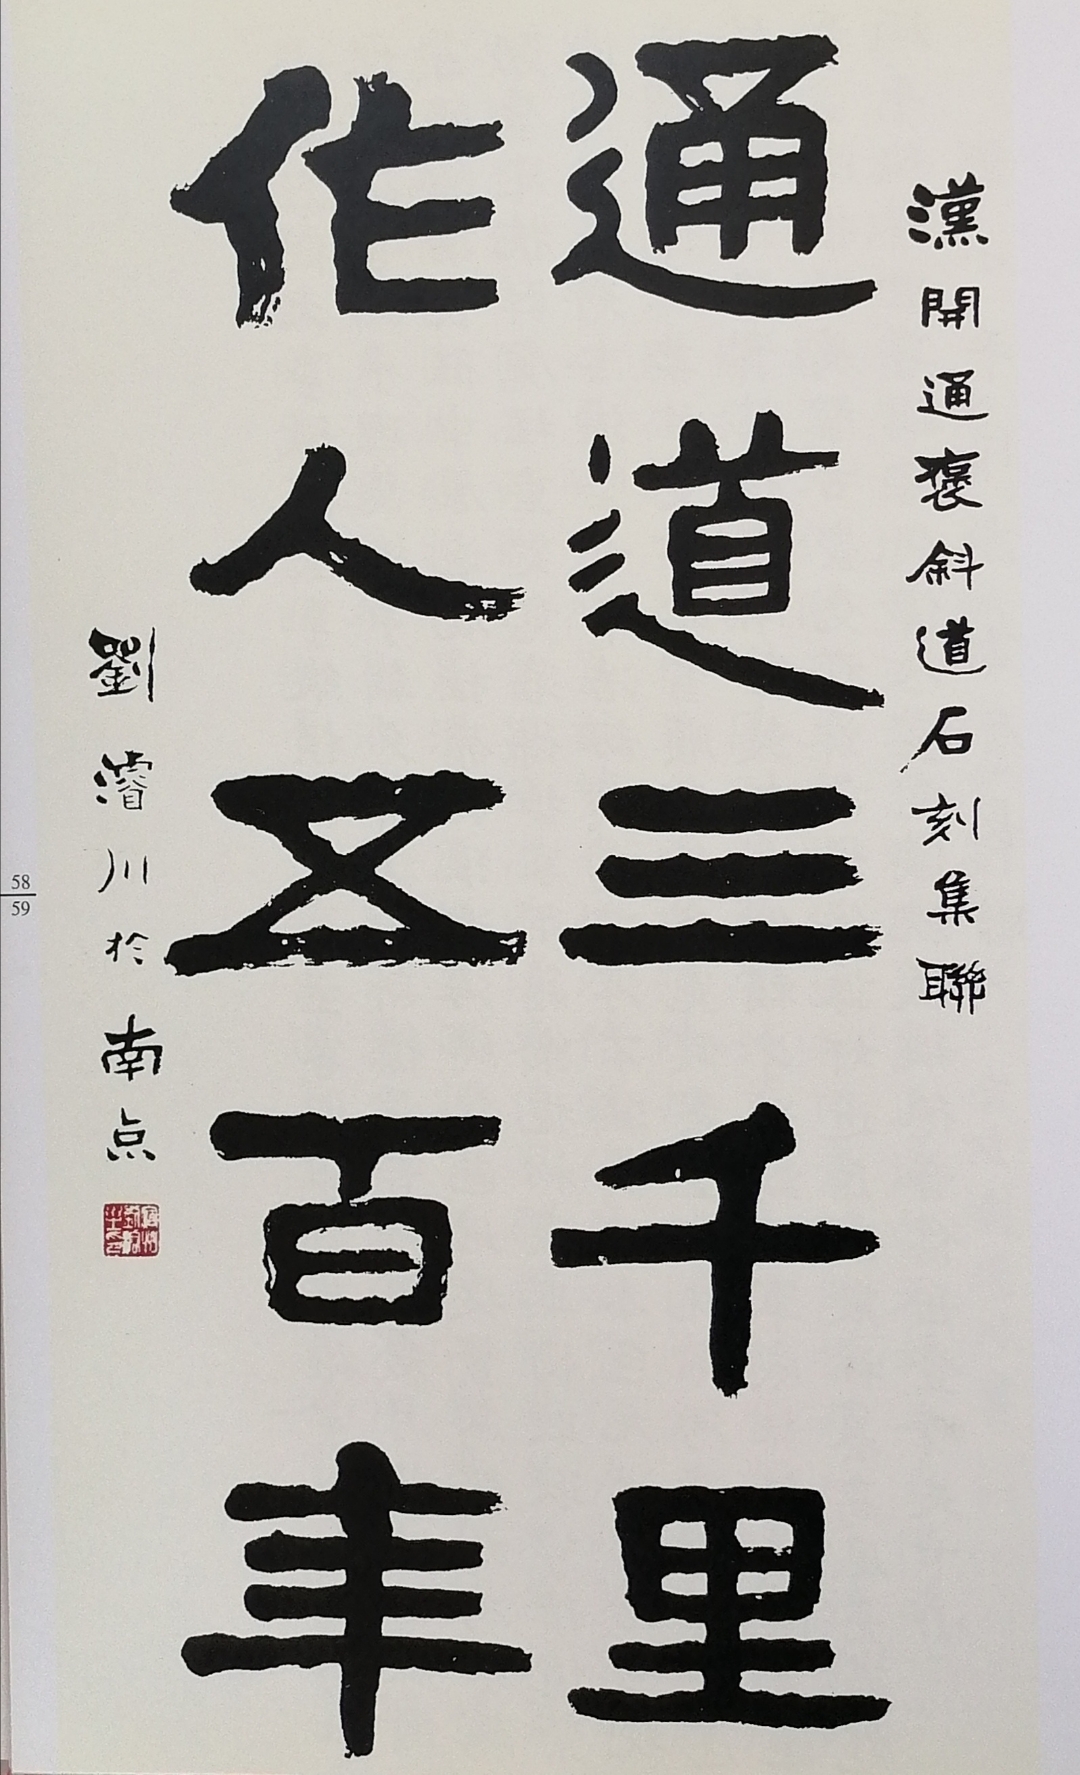 漢開通褒斜道石刻集聯
通道三千里
作人五百年
劉濬川於南点
58
59